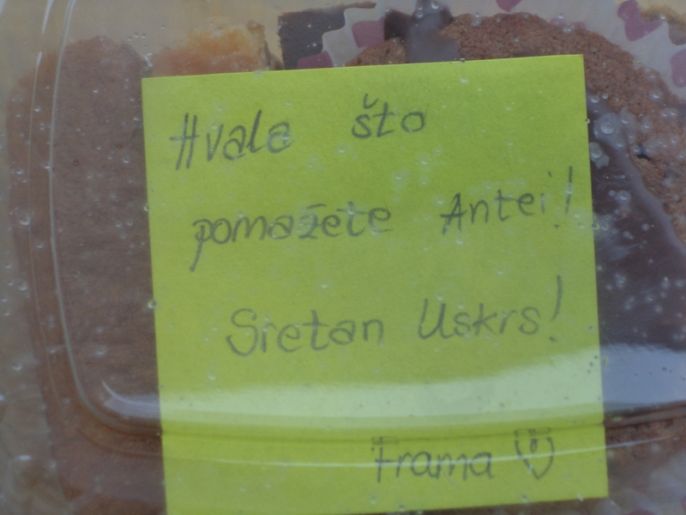 Hvala što
pomažete Antei!
Sretan Uskrs!
Frama